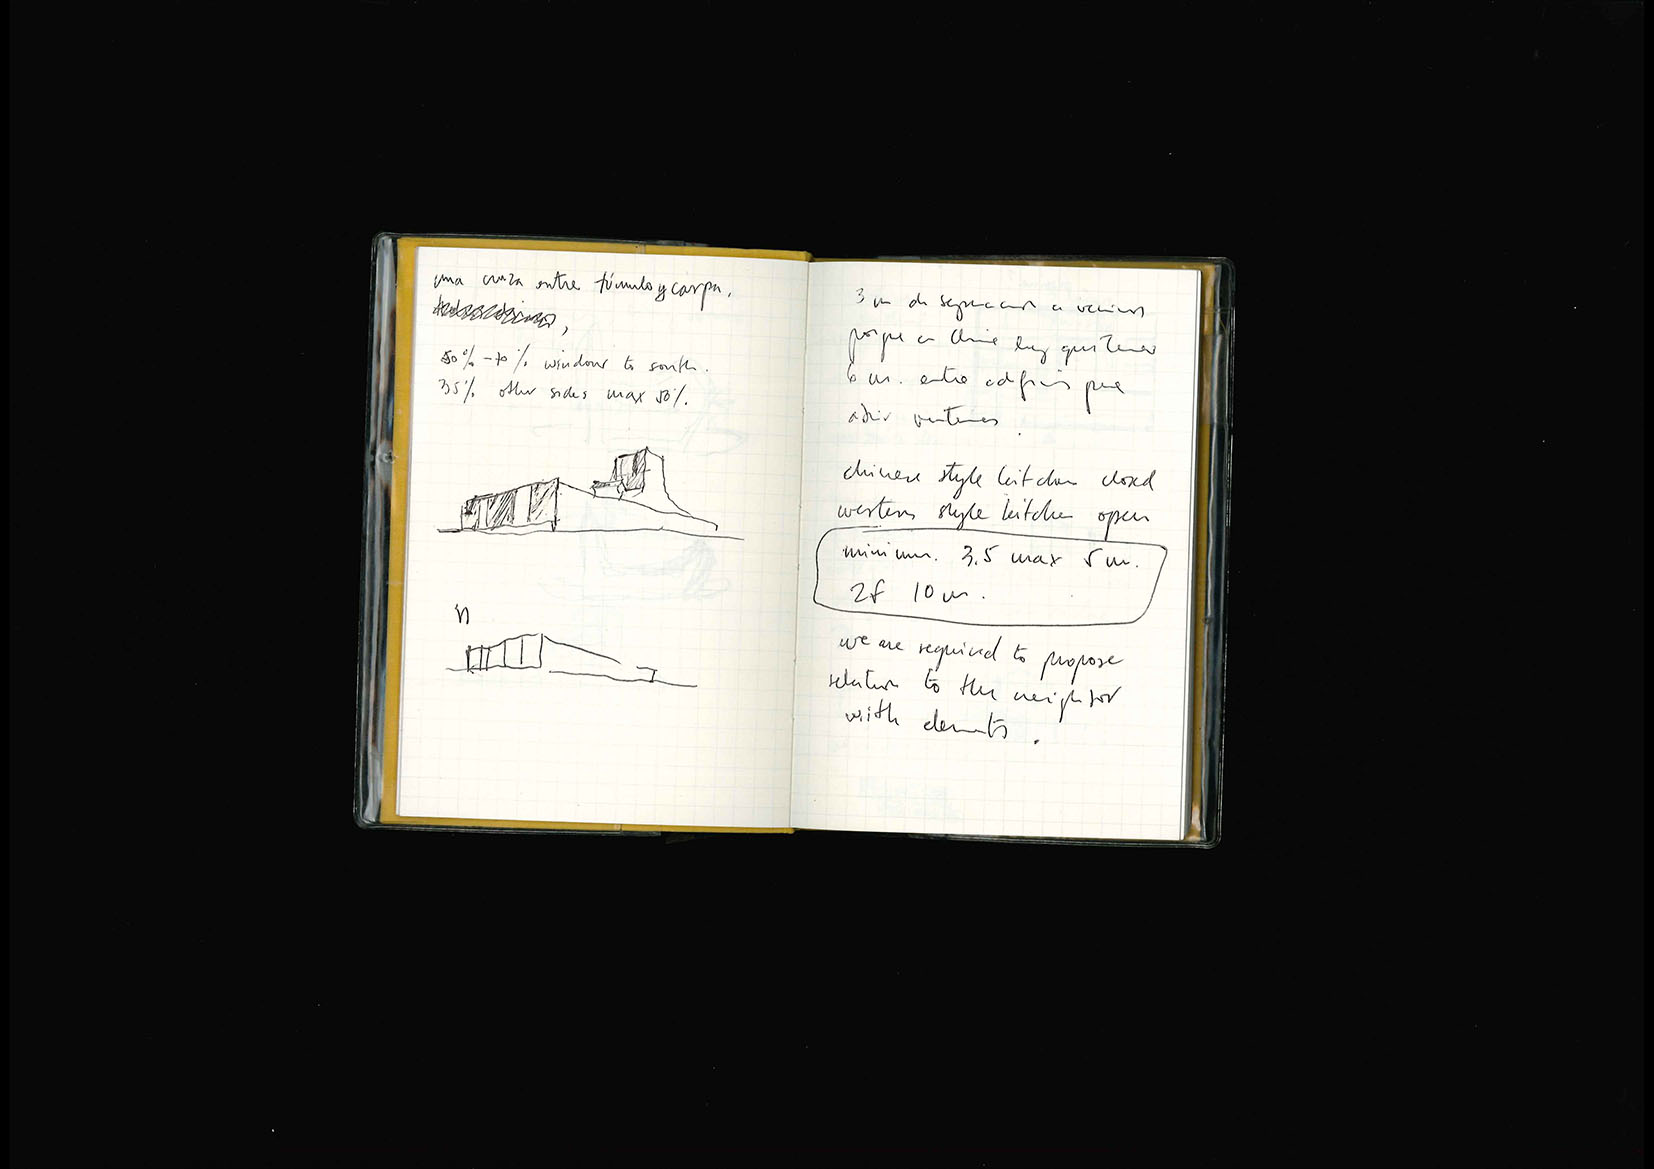 una cruza entre túmulo y carpa.
50% - 70% windows to south.
35% other sides max 50%.
3 m de separacion a vecinos
porque en China hay que tener
6 m. entre edificios para
abrir ventanas.
chinese style kitchen closed
western style kitchen open
minimum. 3.5 max 5 m.
2f 10 m.
we are required to propose
relation to the neighbor
with elements.